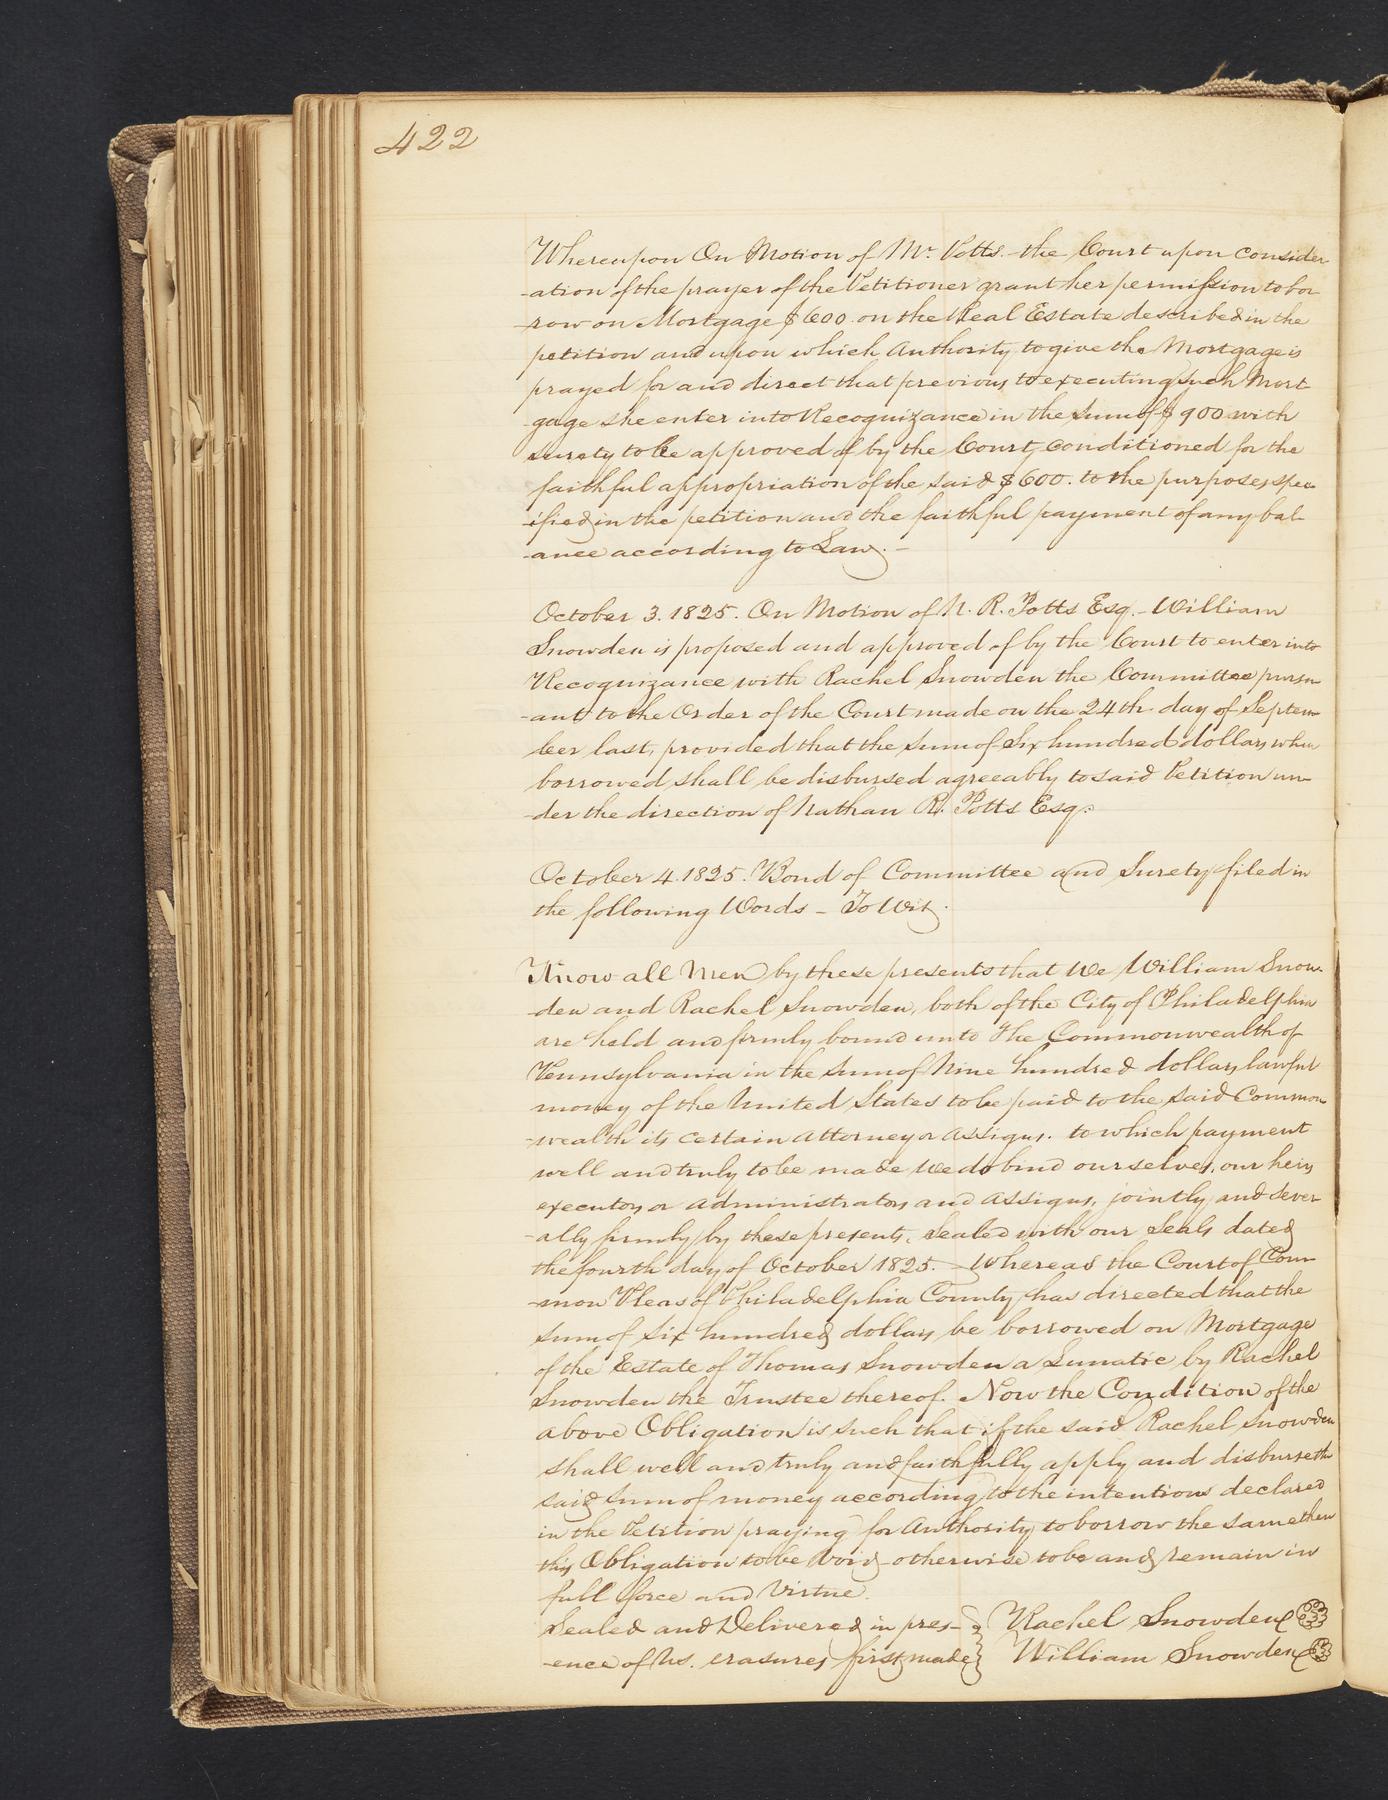 422
Whereupon On Motion of Mr. Potts. the Court upon consider-
-ation of the prayer of the Petitioner grant her permission to bor
-row on Mortgage $600. on the Real Estate described in the
petition and upon which Authority to give the Mortgage is
prayed for and direct that previous to executing such Mort-
gage she enter into Recognizance in the sum of $900 with
surety to be approved of by the Court, conditioned for the
faithful appropriation of the said $600. to the purposes spec-
-ified in the petition and the faithful payment of any bal-
-ance according to Law. -
October 3. 1825. On Motion of N. R. Potts Esq. - William
Snowden is proposed and approved of by the Court to enter into
Recognizance with Rachel Snowden the Committee pursu-
-ant to the Order of the Court made on the 24th day of Septem-
ber last, provided that the sum of Six hundred dollars when
borrowed shall be disbursed agreeably to said Petition un-
-der the direction of Nathan R. Potts Esq:
October 4. 1825. Bond of Committee and Surety filed in
the following Words - To Wit.
Know all Men by these presents that We William Snow-
-den and Rachel Snowden, both of the City of Philadelphia
are held and firmly bound unto The Commonwealth of
Pennsylvania in the sum of Nine hundred dollars lawful
money of the United States to be paid to the said Common
-wealth its certain Attorney or Assigns. to which payment
well and truly to be made We do bind ourselves, our heirs
executors or administrators and Assigns, jointly and sever-
-ally firmly by these presents. Sealed with our Seals dated
the fourth day of October 1825. - Whereas the Court of Com-
-mon Pleas of Philadelphia County has directed that the
sum of Six hundred dollars be borrowed on Mortgage
of the Estate of Thomas Snowden a Lunatic by Rachel
Snowden the Trustee thereof. Now the Condition of the
above Obligation is such that if the said Rachel Snowden
shall well and truly and faithfully apply and disburse the
said sum of money according to the intentions declared
in the Petition praying for Authority to borrow the same then
this Obligation to be Void otherwise to be and remain in
full force and virtue.
Sealed and Delivered in pres- Rachel Snowden
-ence of us. erasures first made William Snowden